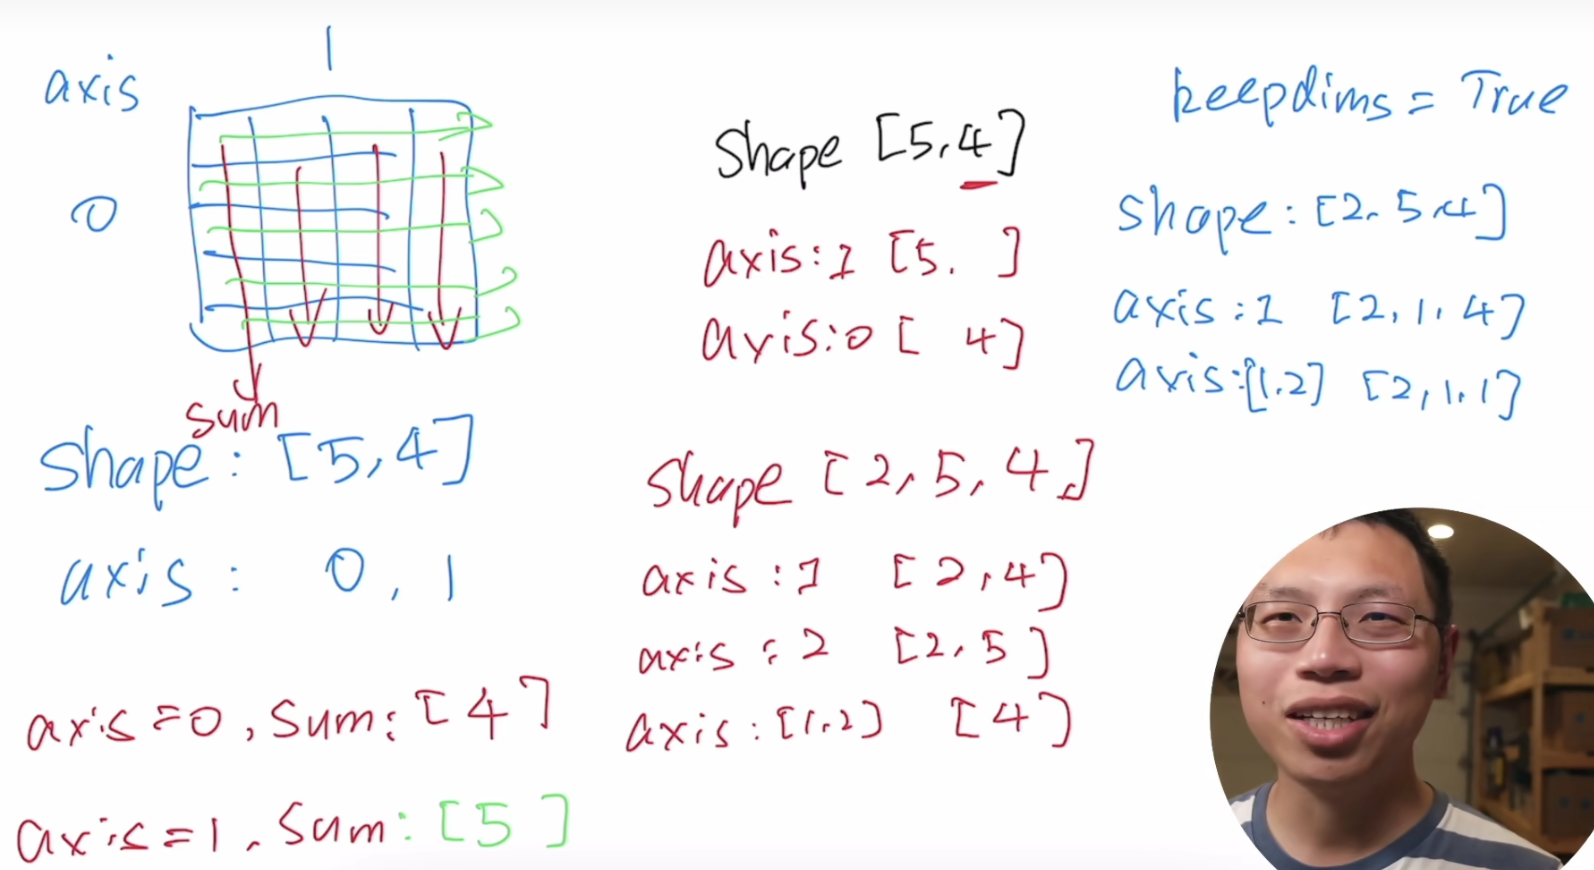 1
axis
0
sum
shape: [5,4]
axis: 0, 1
axis=0, sum: [4]
axis=1, sum: [5]
shape [5,4]
axis:1 [5. ]
axis:0 [ 4]
shape [2,5,4]
axis:1 [2,4]
axis:2 [2,5]
axis:[1,2] [4]
keepdims=True
shape:[2.5.4]
axis:1 [2,1,4]
axis:[1.2] [2,1.1]